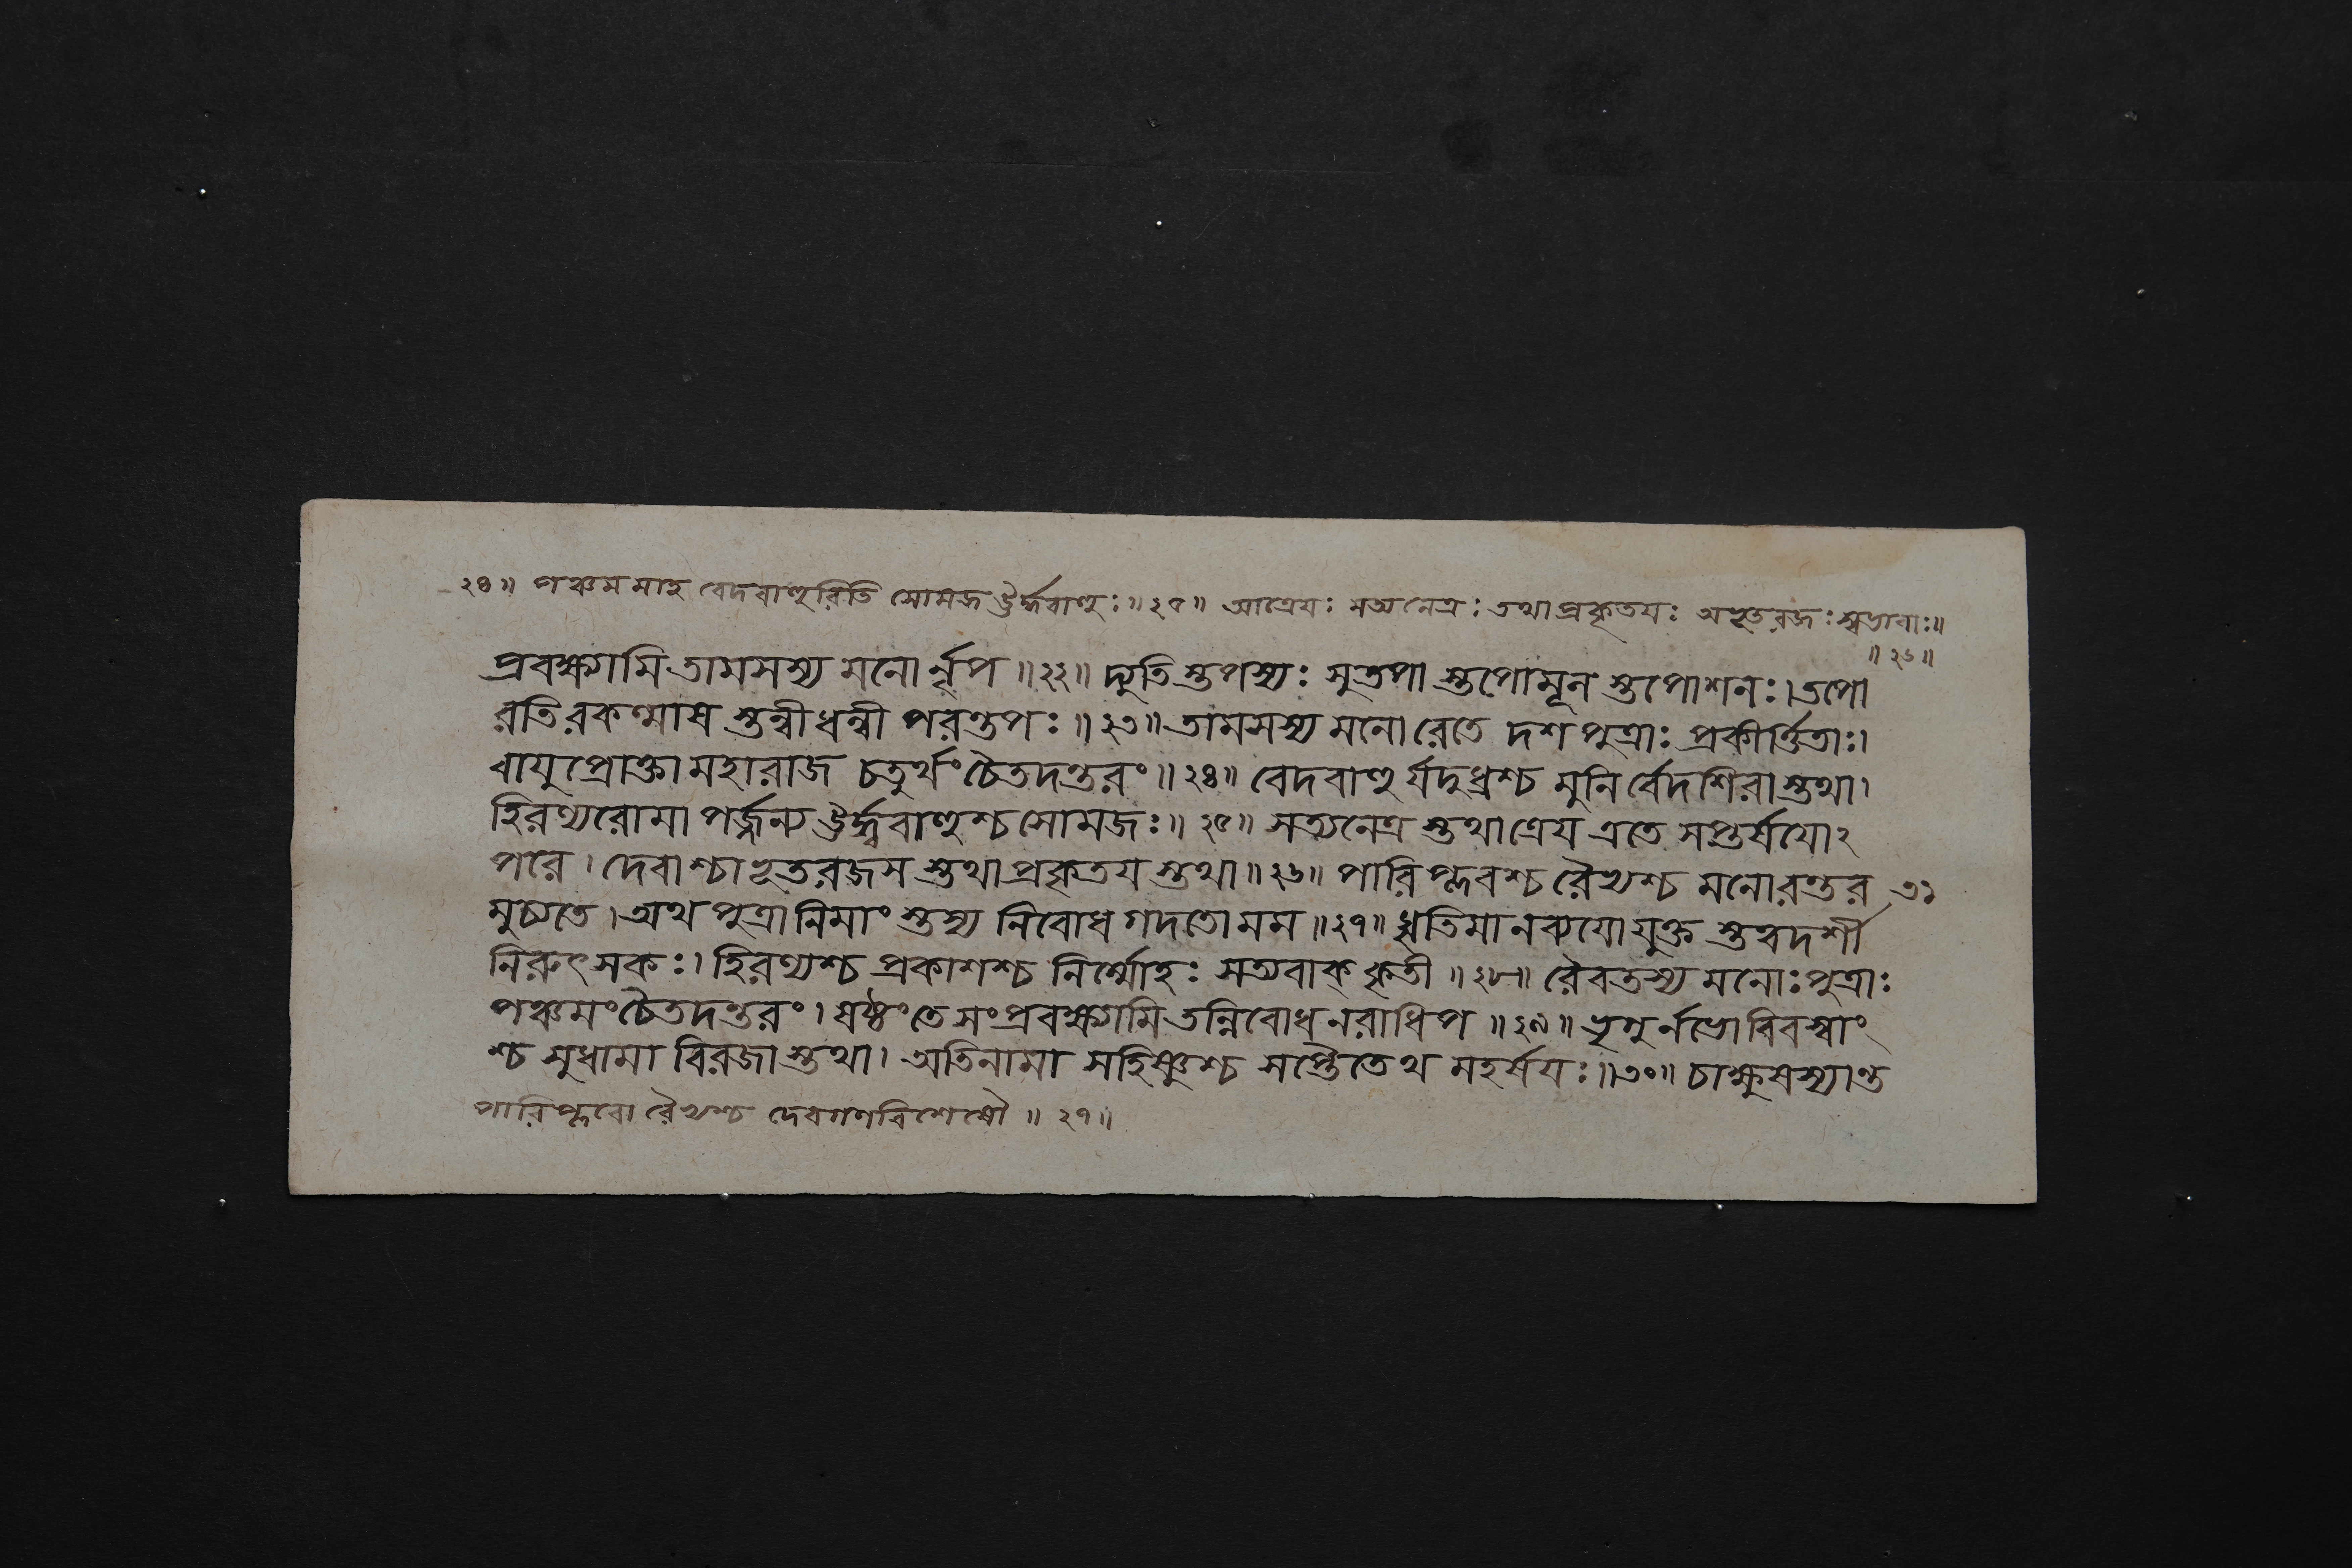 ২৪॥ পঞ্চমমাহ বেদবাণুরিতি সোমজ ঊর্দ্ধবাণুঃ॥২৫॥ আত্রেযঃ সত্যনেত্রঃ তথাপ্রকৃতযঃ অভূতরজঃ স্বভাবাঃ॥
॥২৬॥
প্রবক্ষ্যামি তামসস্য মনোর্নৃপ॥২২॥ দ্যুতিস্তপস্যঃ সুতপাস্তপোমূনস্তপোশনঃ।তপো
রতিরকল্মাষস্তন্বীধন্বী পরন্তপঃ॥২৩॥ তামসস্য মনোরেতে দশপুত্রাঃ প্রকীর্ত্তিতাঃ।
বাযুপ্রোক্তা মহারাজ চতুর্থং চৈতদন্তরং॥২৪॥ বেদবাণুর্যদুধ্রশ্চ মুনির্বেদশিরাস্তথা।
হিরণ্যরোমা পর্জ্জন্য ঊর্দ্ধ্ববাণুশ্চ সোমজঃ॥২৫॥ সত্যনেত্রস্তথাত্রেয এতে সপ্তর্ষযোঽ
পরে। দেবাশ্চাভূতরজসস্তথাপ্রকৃতযস্তথা॥২৬॥ পারিপ্লবশ্চ রৈভ্যশ্চ মনোরন্তর ৩১
মুচ্যতে।অথ পুত্রানিমাংস্তস্য নিবোধ গদতো মম॥২৭॥ ধৃতিমানব্যযো যুক্তস্তত্বদর্শী
নিরুৎসকঃ। হিরণ্যশ্চ প্রকাশশ্চ নির্ম্মোহঃ সত্যবাক্ কৃতী॥২৮॥ রৈবতস্য মনোঃ পুত্রাঃ
পঞ্চমং চৈতদন্তরং। ষষ্ঠং তে সংপ্রবক্ষ্যামি তন্নিবোধ নরাধিপ॥২৯॥ ভৃগুর্নভো বিবস্বাং
শ্চ সুধামা বিরজাস্তথা। অতিনামা সহিষ্ণুশ্চ সপ্তৈতেথ মহর্ষযঃ॥৩০॥ চাক্ষুষস্যান্ত
পারিপ্লবো রৈভ্যশ্চ দেবগণবিশেষৌ॥২৭॥